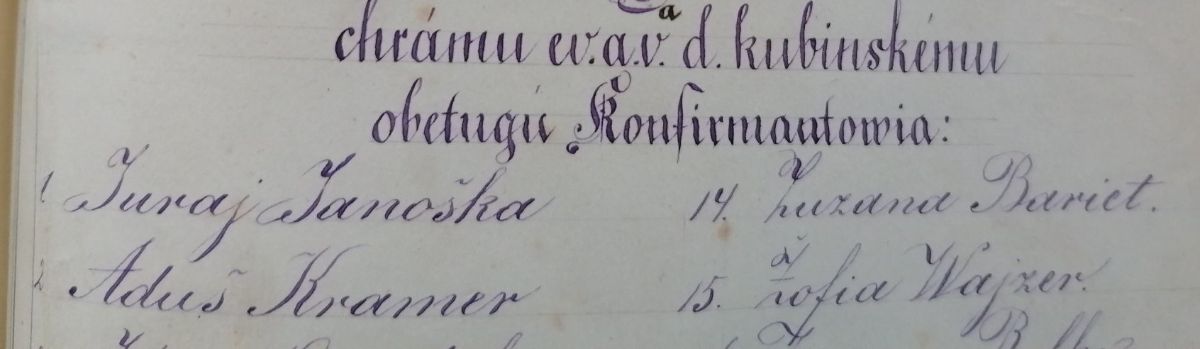 chrámu ev. a. v. d. kubinskému
obetugú Konfirmantowia:
1 Juraj Janoška
14. Zuzana Bariet.
2 Aduš Kramer
15. Žofia Wajzer.